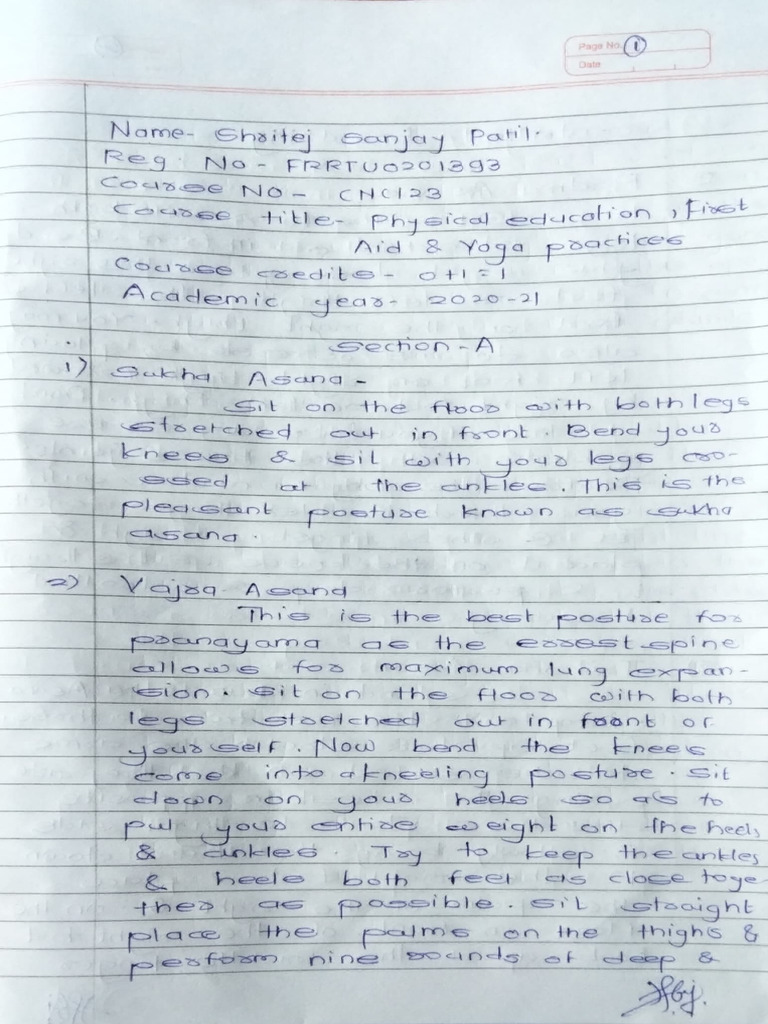 Page No. 1
Date
Name- Shritej Sanjay Patil.
Reg. No - FRRTU0201393
Course No - CNC123
Course title- Physical education, First
Aid & Yoga practices
Course credits - 0+1=1
Academic year- 2020-21
Section-A
1) Sukha Asana -
Sit on the floor with both legs
stretched out in front. Bend your
knees & sit with your legs cro-
ssed at the ankles. This is the
pleasant posture known as sukha
asana.
2) Vajra Asana
This is the best posture for
pranayama as the errest spine
allows for maximum lung expan-
sion. Sit on the floor with both
legs stretched out in front of
yourself. Now bend the knees
come into a kneeling posture. Sit
down on your heels so as to
put your entire weight on the heels
& ankles. Try to keep the ankles
& heels both feet as close toge
ther as possible. Sit straight
place the palms on the thighs &
perform nine rounds of deep &